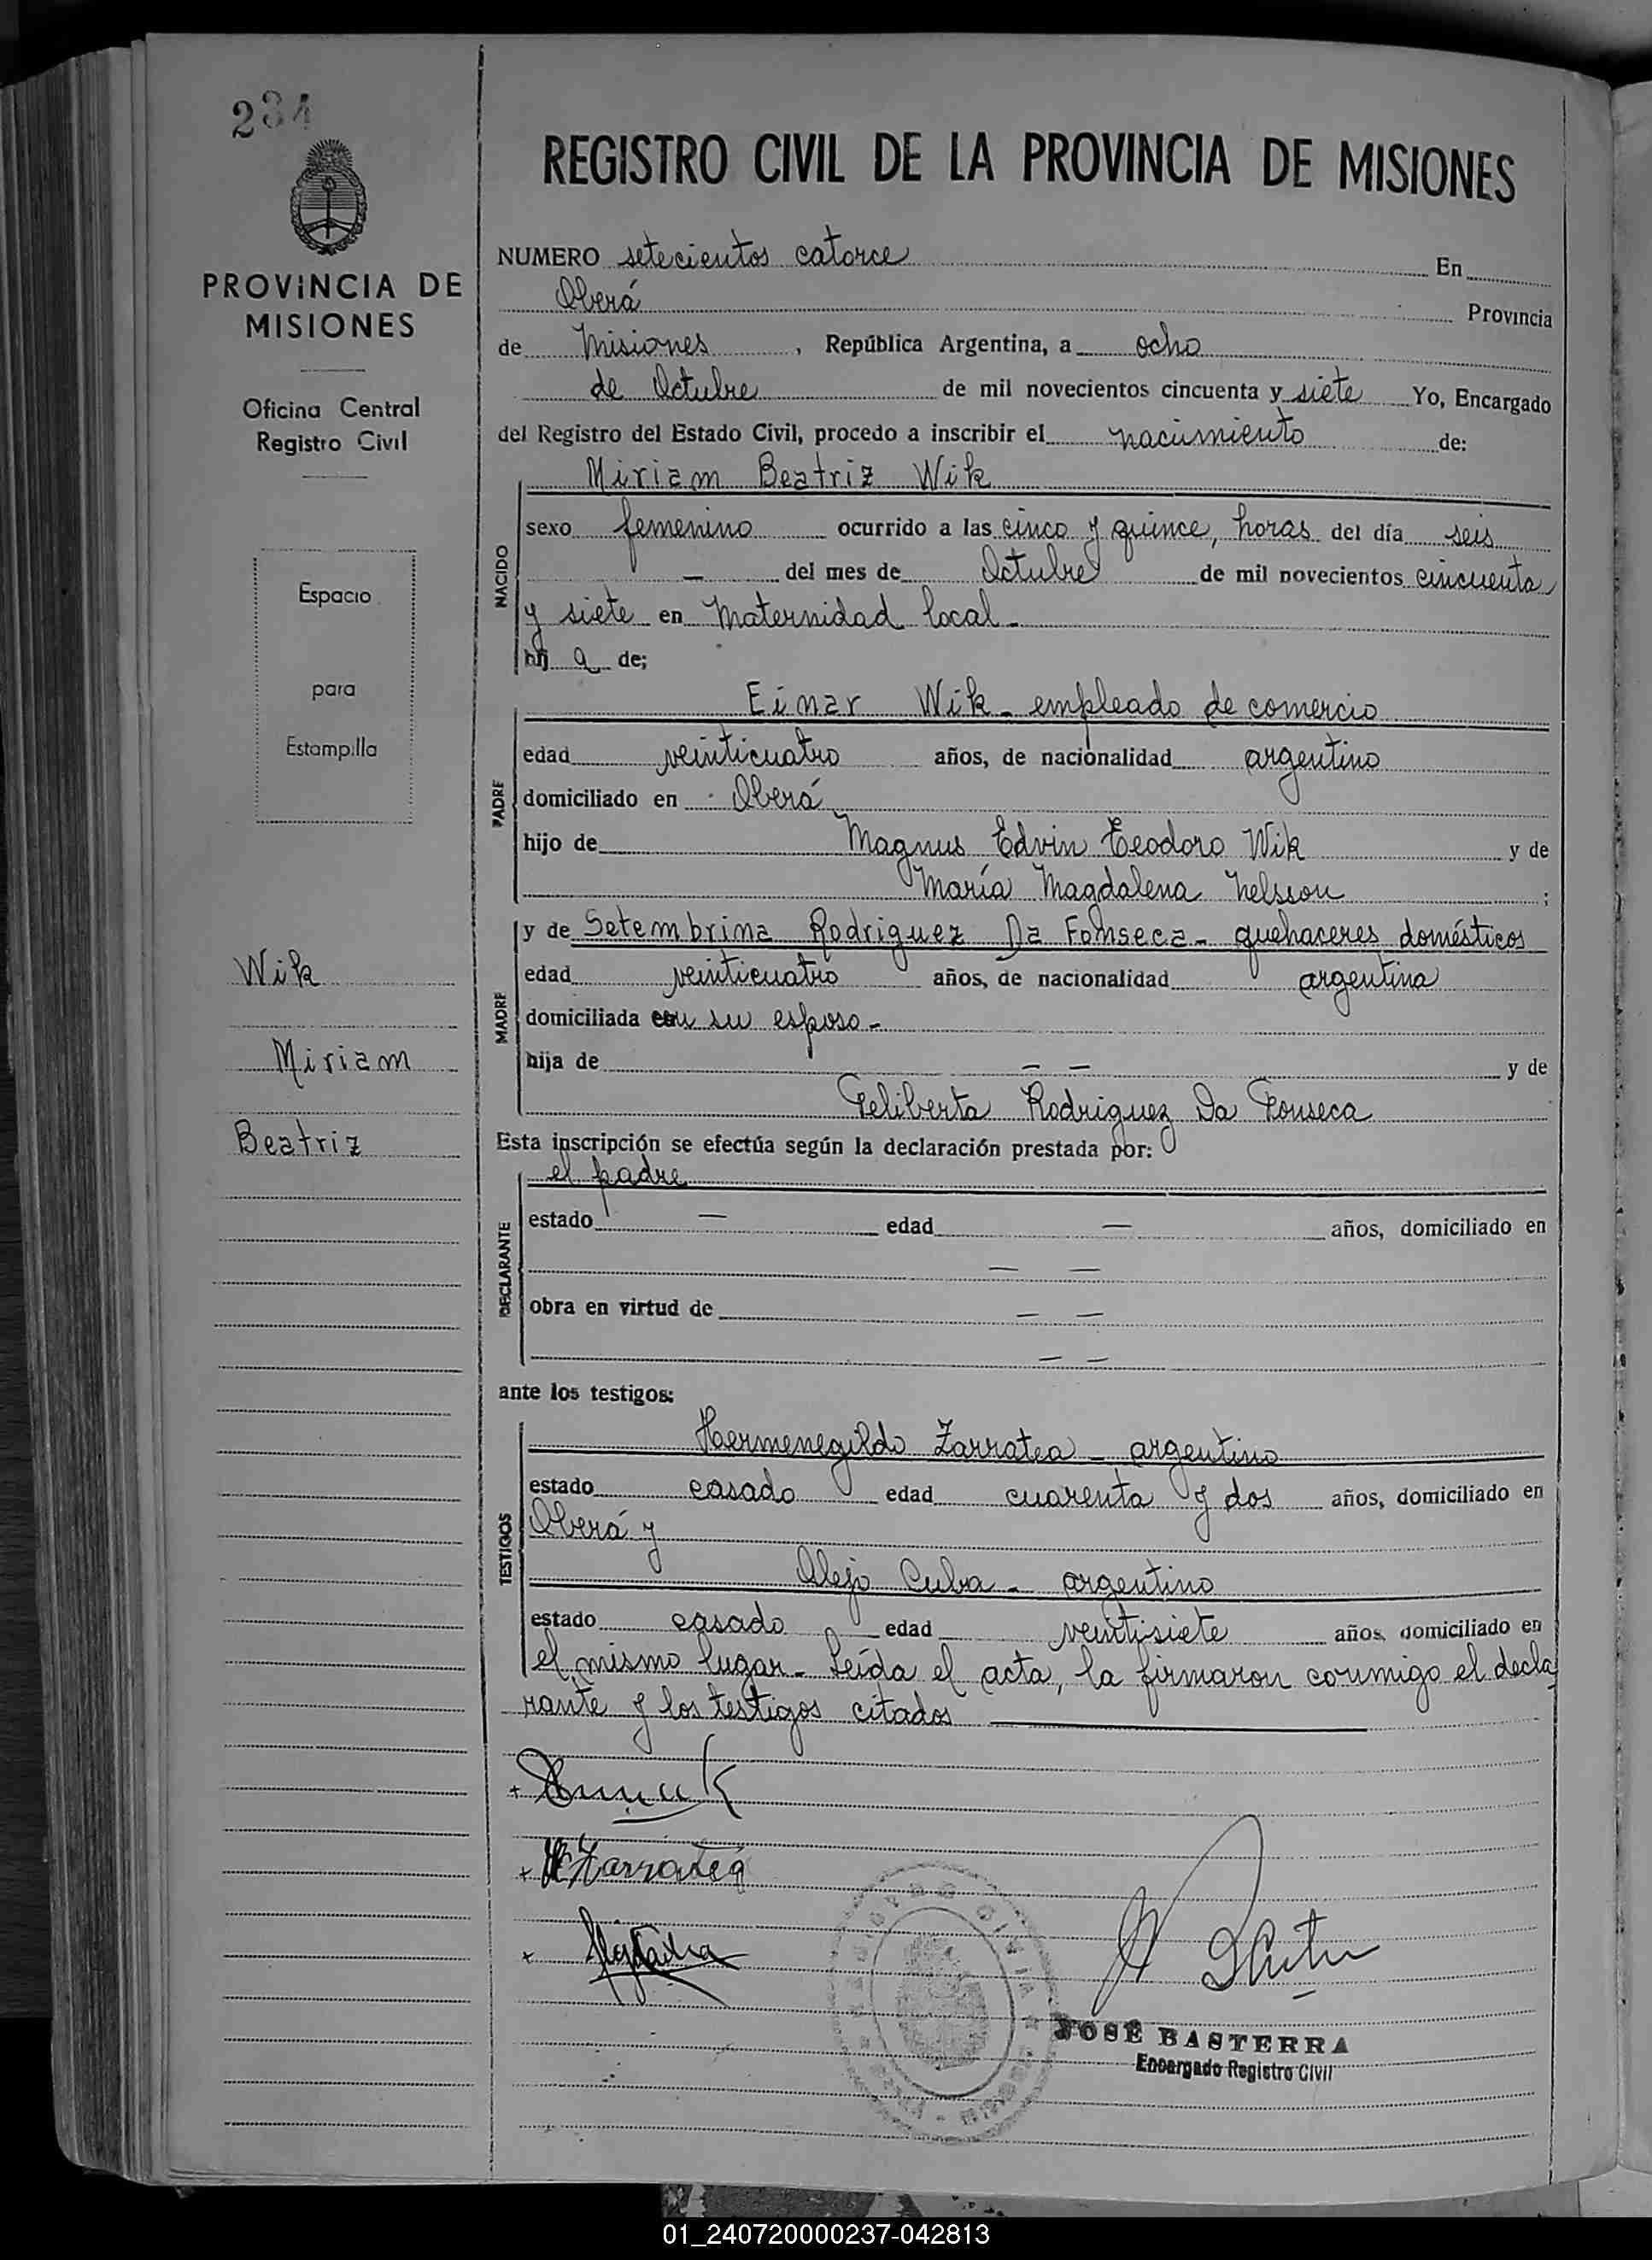 234
PROVINCIA DE
MISIONES
Oficina Central
Registro Civil
Espacio
para
Estampilla
Wik
Miriam
Beatriz
REGISTRO CIVIL DE LA PROVINCIA DE MISIONES
NUMERO setecientos catorce En
Oberá Provincia
de Misiones, República Argentina, a ocho
de Octubre de mil novecientos cincuenta y siete Yo, Encargado
del Registro del Estado Civil, procedo a inscribir el nacimiento de:
Miriam Beatriz Wik
NACIDO
sexo femenino ocurrido a las cinco y quince, horas del día seis
— del mes de Octubre de mil novecientos cincuenta
y siete en Maternidad local -
hij a de;
Einar Wik - empleado de comercio
PADRE
edad veinticuatro años, de nacionalidad argentino
domiciliado en Oberá
hijo de Magnus Edvin Teodoro Wik y de
María Magdalena Nelsson ;
MADRE
y de Setembrina Rodriguez Da Fonseca - quehaceres domésticos
edad veinticuatro años, de nacionalidad argentina
domiciliada con su esposo -
hija de — — y de
Feliberta Rodriguez Da Fonseca
Esta inscripción se efectúa según la declaración prestada por:
el padre
DECLARANTE
estado — edad — años, domiciliado en
— —
obra en virtud de — —
— —
ante los testigos:
Hermenegildo Zarratea - argentino
TESTIGOS
estado casado edad cuarenta y dos años, domiciliado en
Oberá y
Alejo Cuba - argentino
estado casado edad veintisiete años, domiciliado en
el mismo lugar - Leída el acta, la firmaron conmigo el decla
rante y los testigos citados
+
+ H Zarratea
+
JOSÉ BASTERRA
Encargado Registro Civil
01_240720000237-042813